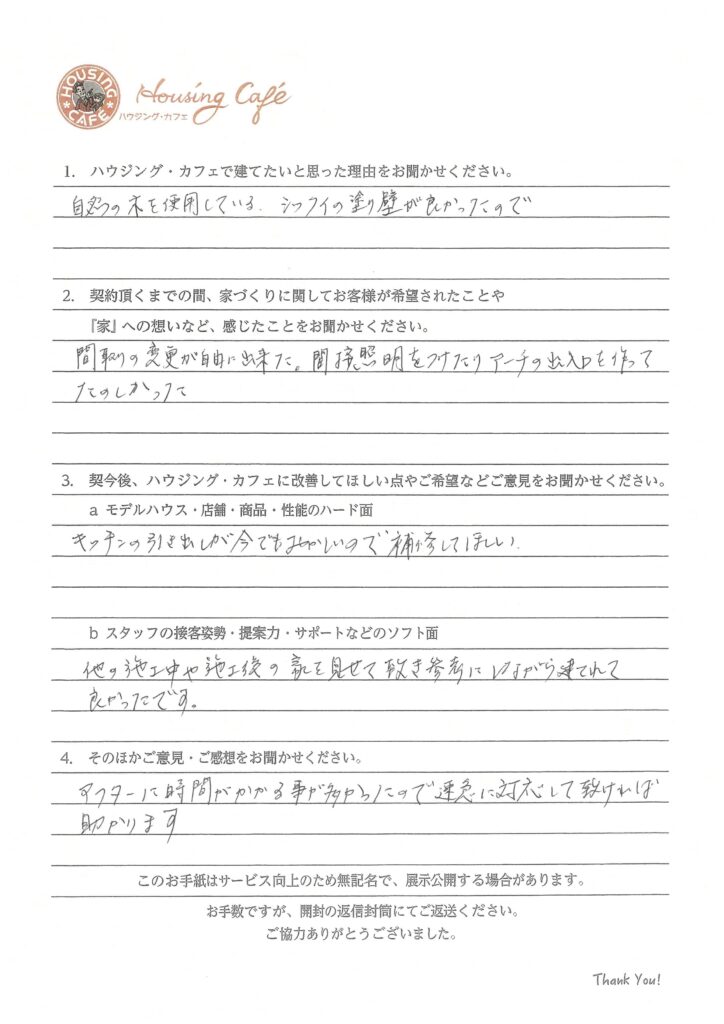 HOUSING CAFÉ
Housing Café
ハウジング・カフェ
1. ハウジング・カフェで建てたいと思った理由をお聞かせください。
自然の木を使用している. シックイの塗り壁が良かったので
2. 契約頂くまでの間、家づくりに関してお客様が希望されたことや
『家』への想いなど、感じたことをお聞かせください。
間取りの変更が自由に出来た。間接照明をつけたりアーチの出入口を作って
たのしかった
3. 契今後、ハウジング・カフェに改善してほしい点やご希望などご意見をお聞かせください。
a モデルハウス・店舗・商品・性能のハード面
キッチンの引き出しが今でもおかしいので補修してほしい.
b スタッフの接客姿勢・提案力・サポートなどのソフト面
他の施工中や施工後の家を見せて頂き参考にしながら建てれて
良かったです。
4. そのほかご意見・ご感想をお聞かせください。
アフターに時間がかかる事が多かったので早急に対応して頂ければ
助かります
このお手紙はサービス向上のため無記名で、展示公開する場合があります。
お手数ですが、開封の返信封筒にてご返送ください。
ご協力ありがとうございました。
Thank You!